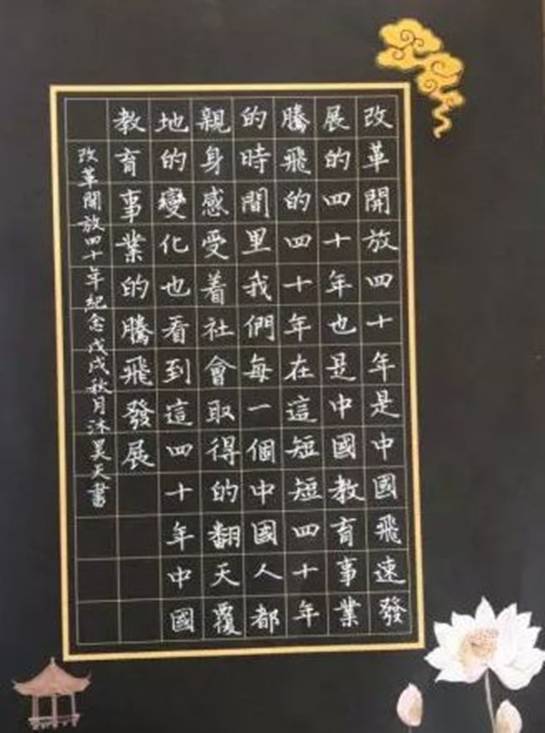 改革開放四十年是中國飛速發
展的四十年也是中國教育事業
騰飛的四十年在這短短四十年
的時間里我們每一個中國人都
親身感受着社會取得的翻天覆
地的變化也看到這四十年中國
教育事業的騰飛發展
改革開放四十年紀念戊戌秋月沐昊天書